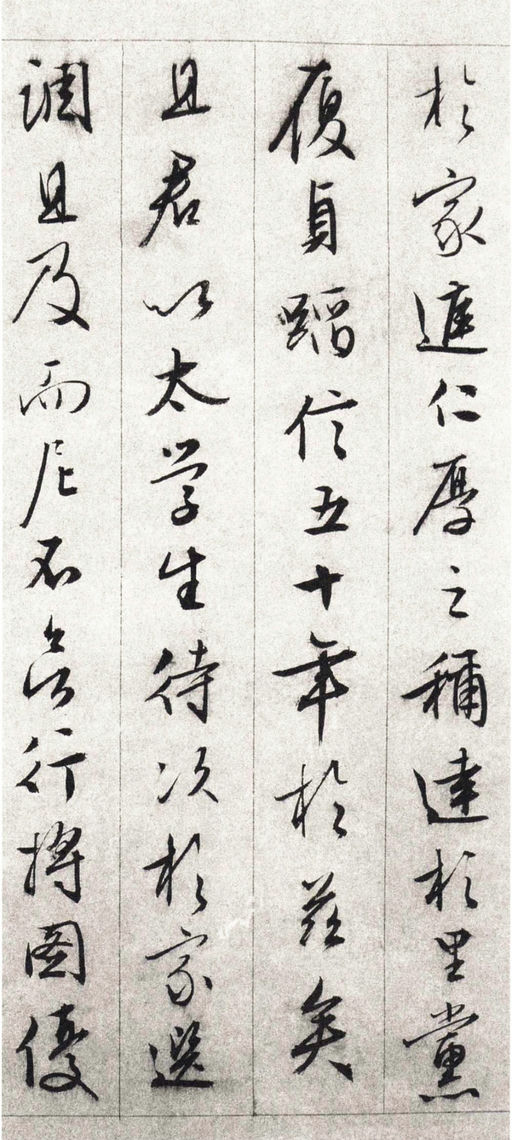 於家庭仁厚之稱達於里黨
履貞蹈信五十年於茲矣
且君以太学生待次於家選
調且及而尼不行將圖優